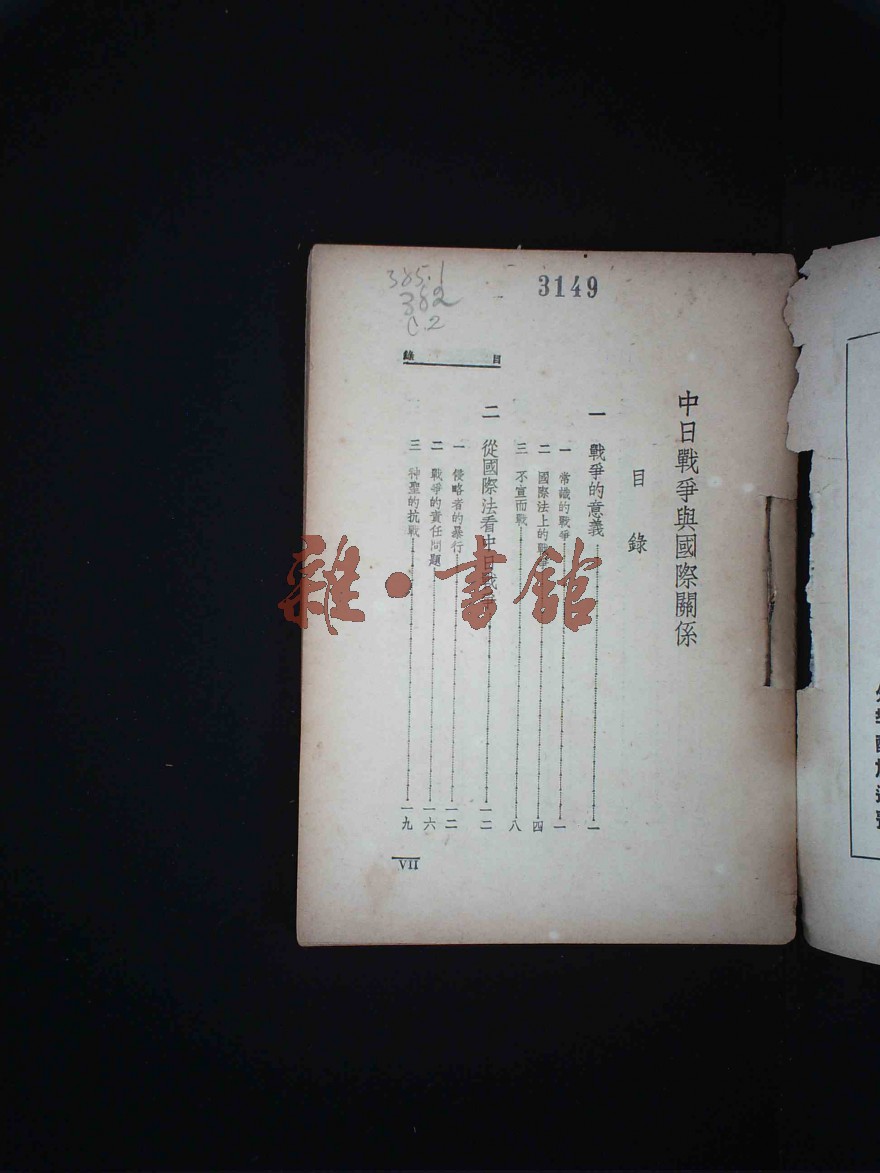 385.1
382
C.2
3149
中日戰爭與國際關係
目錄
一 戰爭的意義 一
一 常識的戰爭 一
二 國際法上的戰爭 四
三 不宣而戰 八
二 從國際法看中日戰爭 一二
一 侵略者的暴行 一二
二 戰爭的責任問題 一六
三 神聖的抗戰 一九
目錄
VII
雜·書館